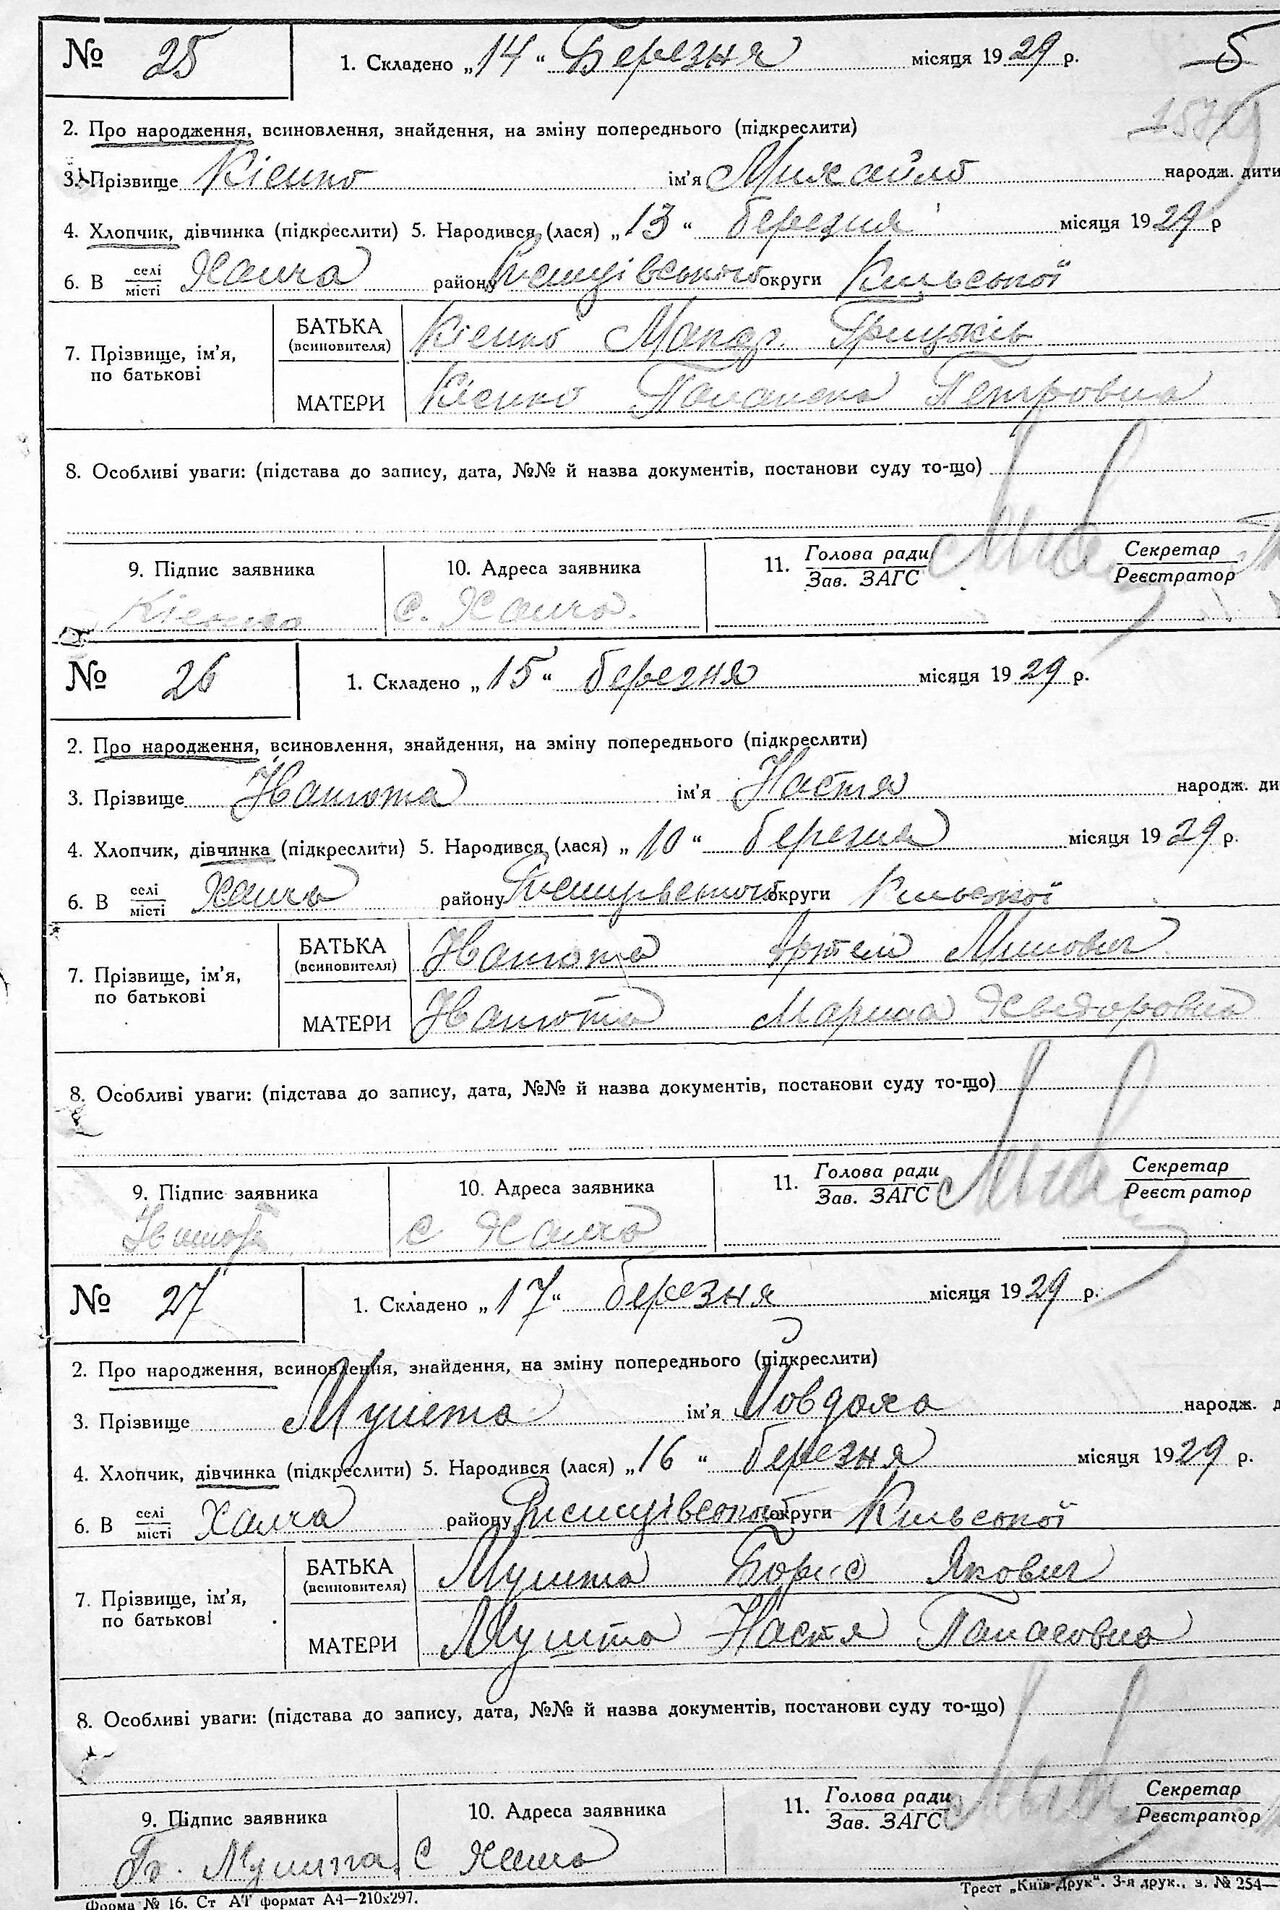 № 25 1. Складено „14“ Березня місяця 1929 р. 5
2. Про народження, всиновлення, знайдення, на зміну попереднього (підкреслити)
3. Прізвище Кієнко ім'я Михайло народж. дити
4. Хлопчик, дівчинка (підкреслити) 5. Народився (лася) „13“ березня місяця 1929 р
6. В селі місті Халча району округи Київської
БАТЬКА (всиновителя) Кієнко Грицьків
7. Прізвище, ім'я, по батькові
МАТЕРИ Кієнко Палажка Петровна
8. Особливі уваги: (підстава до запису, дата, №№ й назва документів, постанови суду то-що)
9. Підпис заявника 10. Адреса заявника 11. Голова ради Зав. ЗАГС Секретар Реєстратор
Кієнко с. Халча.
№ 26 1. Складено „15“ березня місяця 1929 р.
2. Про народження, всиновлення, знайдення, на зміну попереднього (підкреслити)
3. Прізвище ім'я Настя народж. ди
4. Хлопчик, дівчинка (підкреслити) 5. Народився (лася) „10“ березня місяця 1929 р.
6. В селі місті Халча району округи Київської
БАТЬКА (всиновителя) Артем
7. Прізвище, ім'я, по батькові
МАТЕРИ
8. Особливі уваги: (підстава до запису, дата, №№ й назва документів, постанови суду то-що)
9. Підпис заявника 10. Адреса заявника 11. Голова ради Зав. ЗАГС Секретар Реєстратор
с Халча
№ 27 1. Складено „17“ березня місяця 1929 р.
2. Про народження, всиновлення, знайдення, на зміну попереднього (підкреслити)
3. Прізвище Мушта ім'я народж. д
4. Хлопчик, дівчинка (підкреслити) 5. Народився (лася) „16“ березня місяця 1929 р.
6. В селі місті Халча району округи Київської
БАТЬКА (всиновителя) Мушта Борис Якович
7. Прізвище, ім'я, по батькові
МАТЕРИ Мушта Настя Панасовна
8. Особливі уваги: (підстава до запису, дата, №№ й назва документів, постанови суду то-що)
9. Підпис заявника 10. Адреса заявника 11. Голова ради Зав. ЗАГС Секретар Реєстратор
Мушта с Халча
Форма № 16. Ст А4 формат А4—210х297. Трест „Київ-Друк“. 3-я друк., з. № 254—